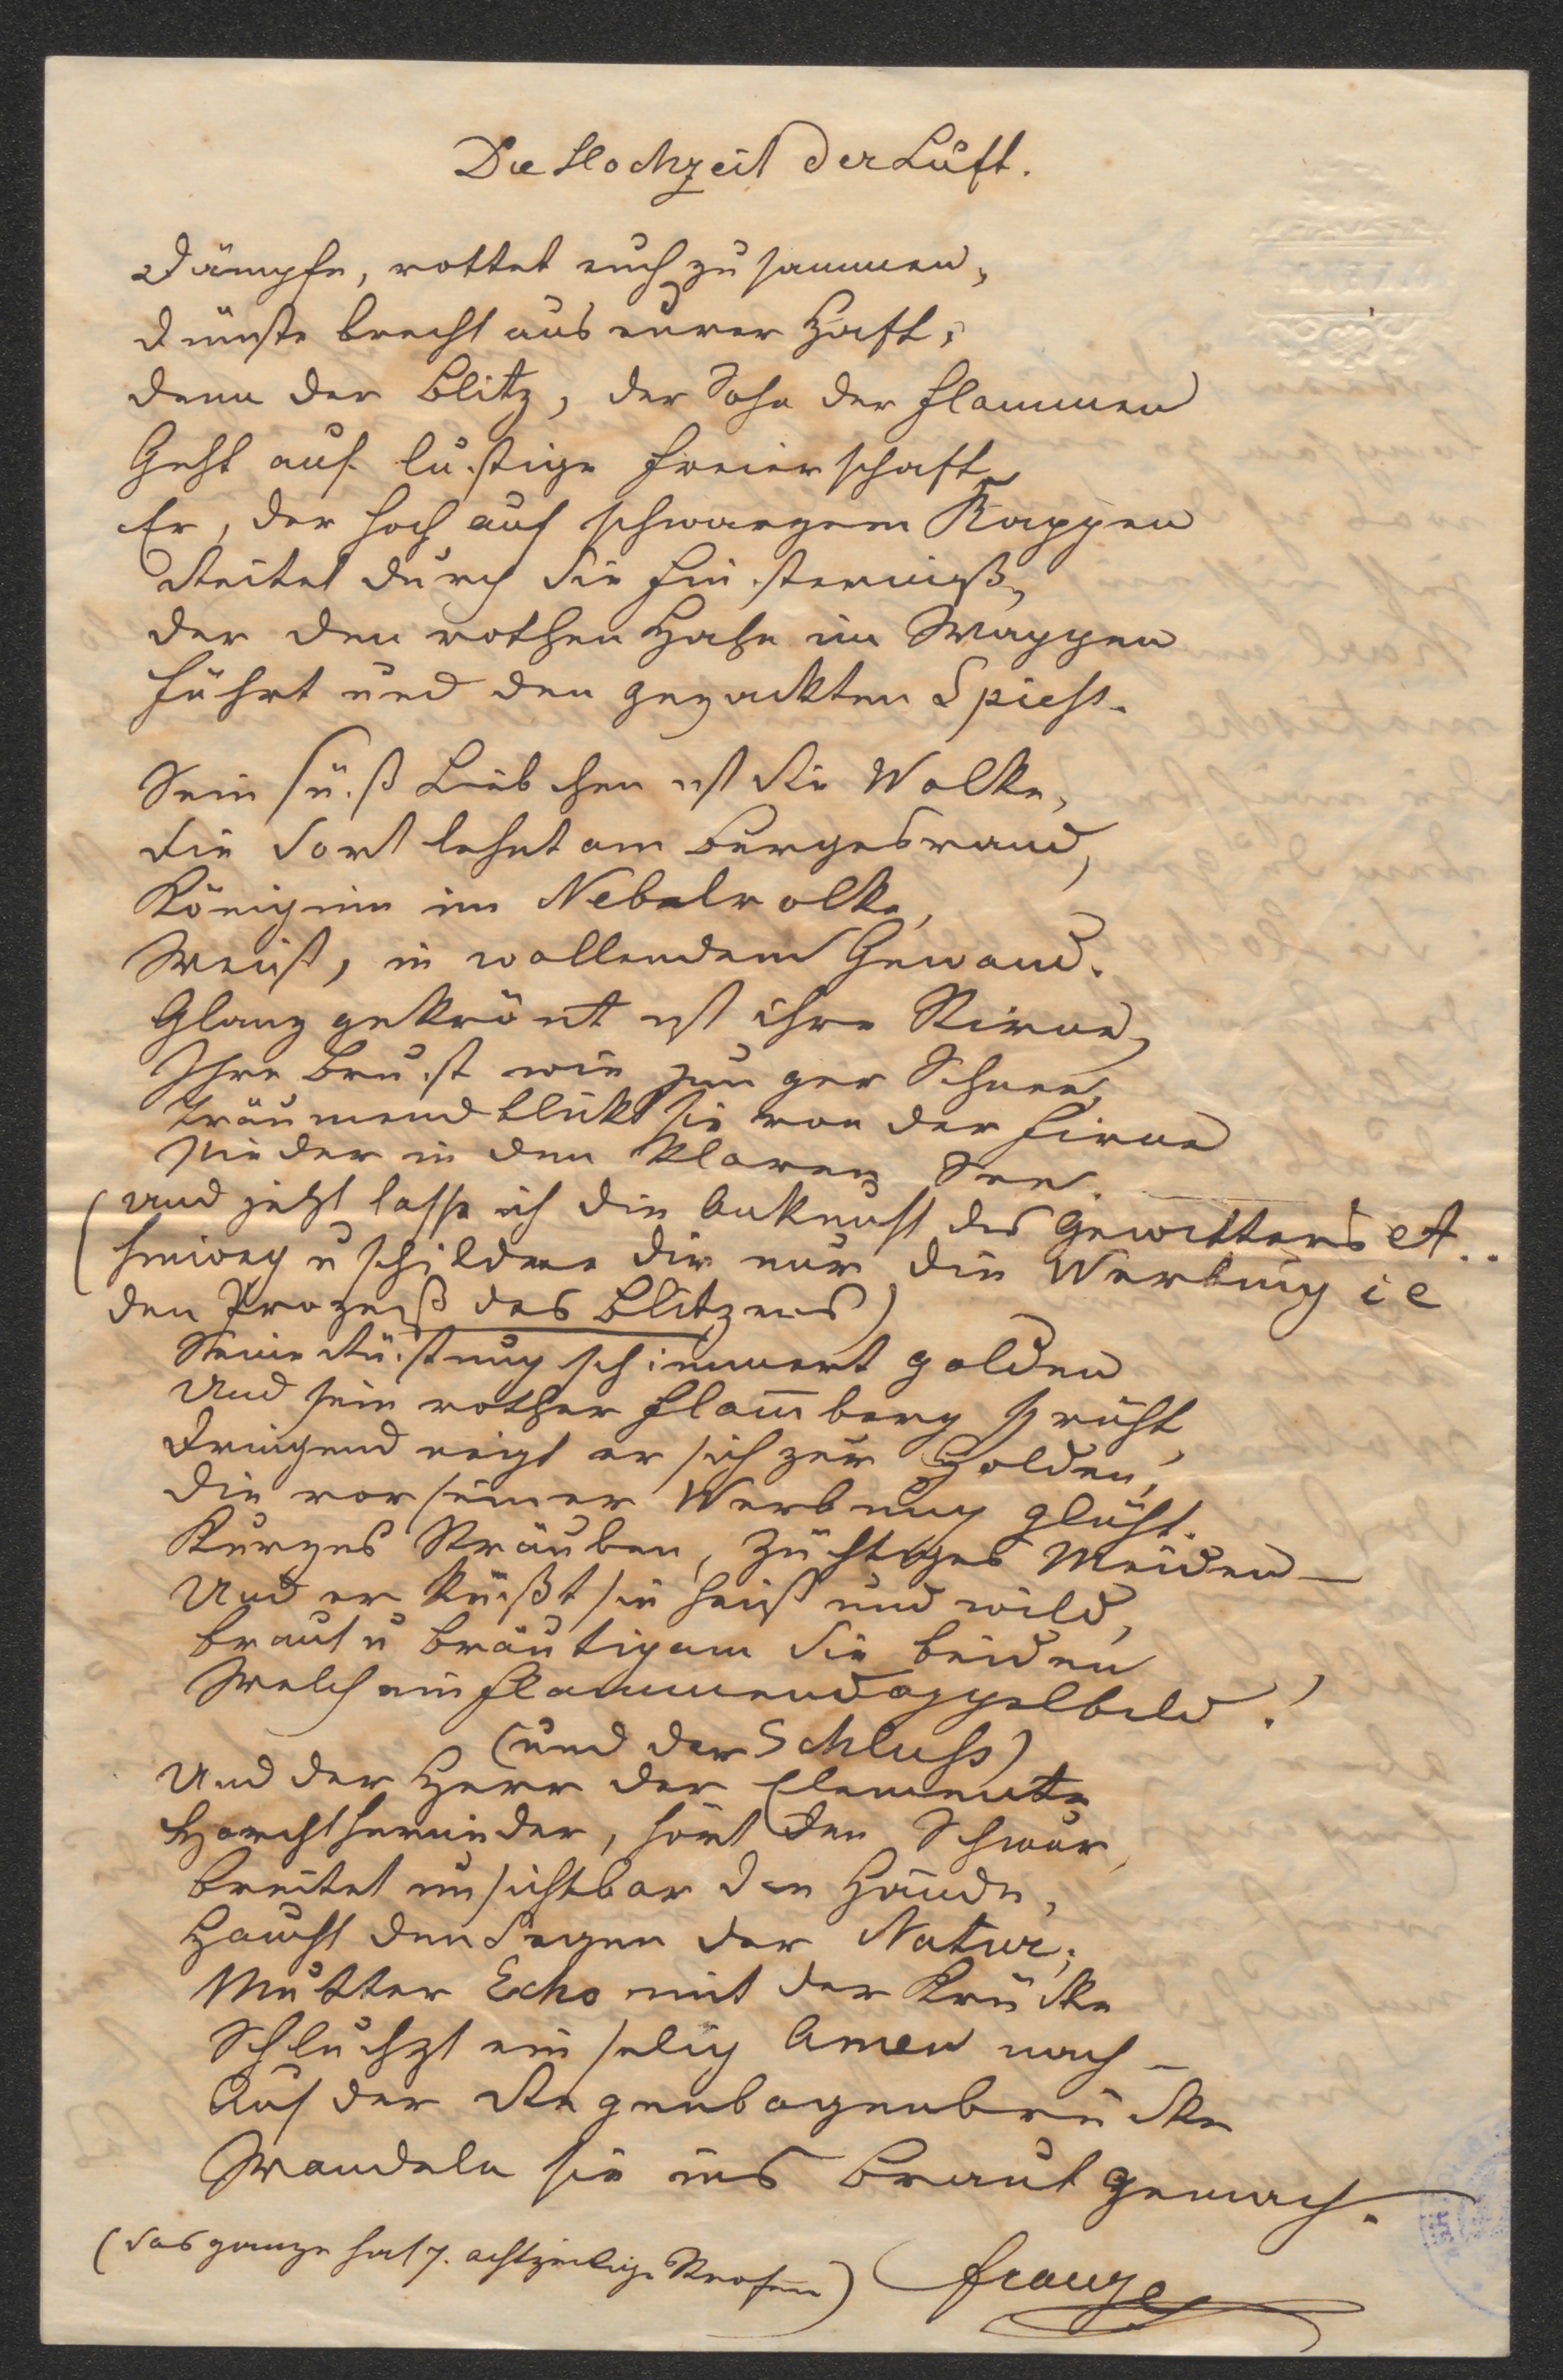 Die Hochzeit der Luft.
Dämpfe, rottet euch zusammen,
Dünste brecht aus eurer Haft,
Denn der Blitz, der Sohn der Flammen
Geht auf lustige Freierschaft,
Er, der hoch auf schwarzem Rappen
Reitet durch die Finsterniß,
Der den rothen Hahn im Wappen
Führt und den gezackten Spiess.
Sein süß Liebchen ist die Wolke,
Die dort lehnt am Bergesrand,
Königinn im Nebelvolke,
Weiß, in wallendem Gewand.
Glanzgekrönt ist ihre Stirne,
Ihre Brust wie junger Schnee,
Träumend blickt sie von der Firne
Nieder in den klaren See.
(Und jetzt lasse ich die Ankunft des Gewitters et..
hinweg u schildere dir nur die Werbung i e
den Prozeß des Blitzens)
Seine Rüstung schimmert golden
Und sein rother Flam̄berg sprüht,
Dringend neigt er sich zur Holden,
Die vor seiner Werbung glüht.
Kurzes Sträuben, züchtiges Meiden—
Und er küßt sie heiß und wild,
Braut u Bräutigam die beiden
Welch ein Flammendoppelbild!
(und der Schluss)
Und der Herr der Elemente
Horcht hernieder, hört den Schwur,
Breitet unsichtbar den Hände,
Haucht den Segen der Natur;
Mutter Echo mit der Krücke
Schluchzt ein selig Amen nach—
Auf der Regenbogenbrücke
Wandeln sie ins Brautgemach.
(das ganze hat 7. achtzeilige Strofen) Franz